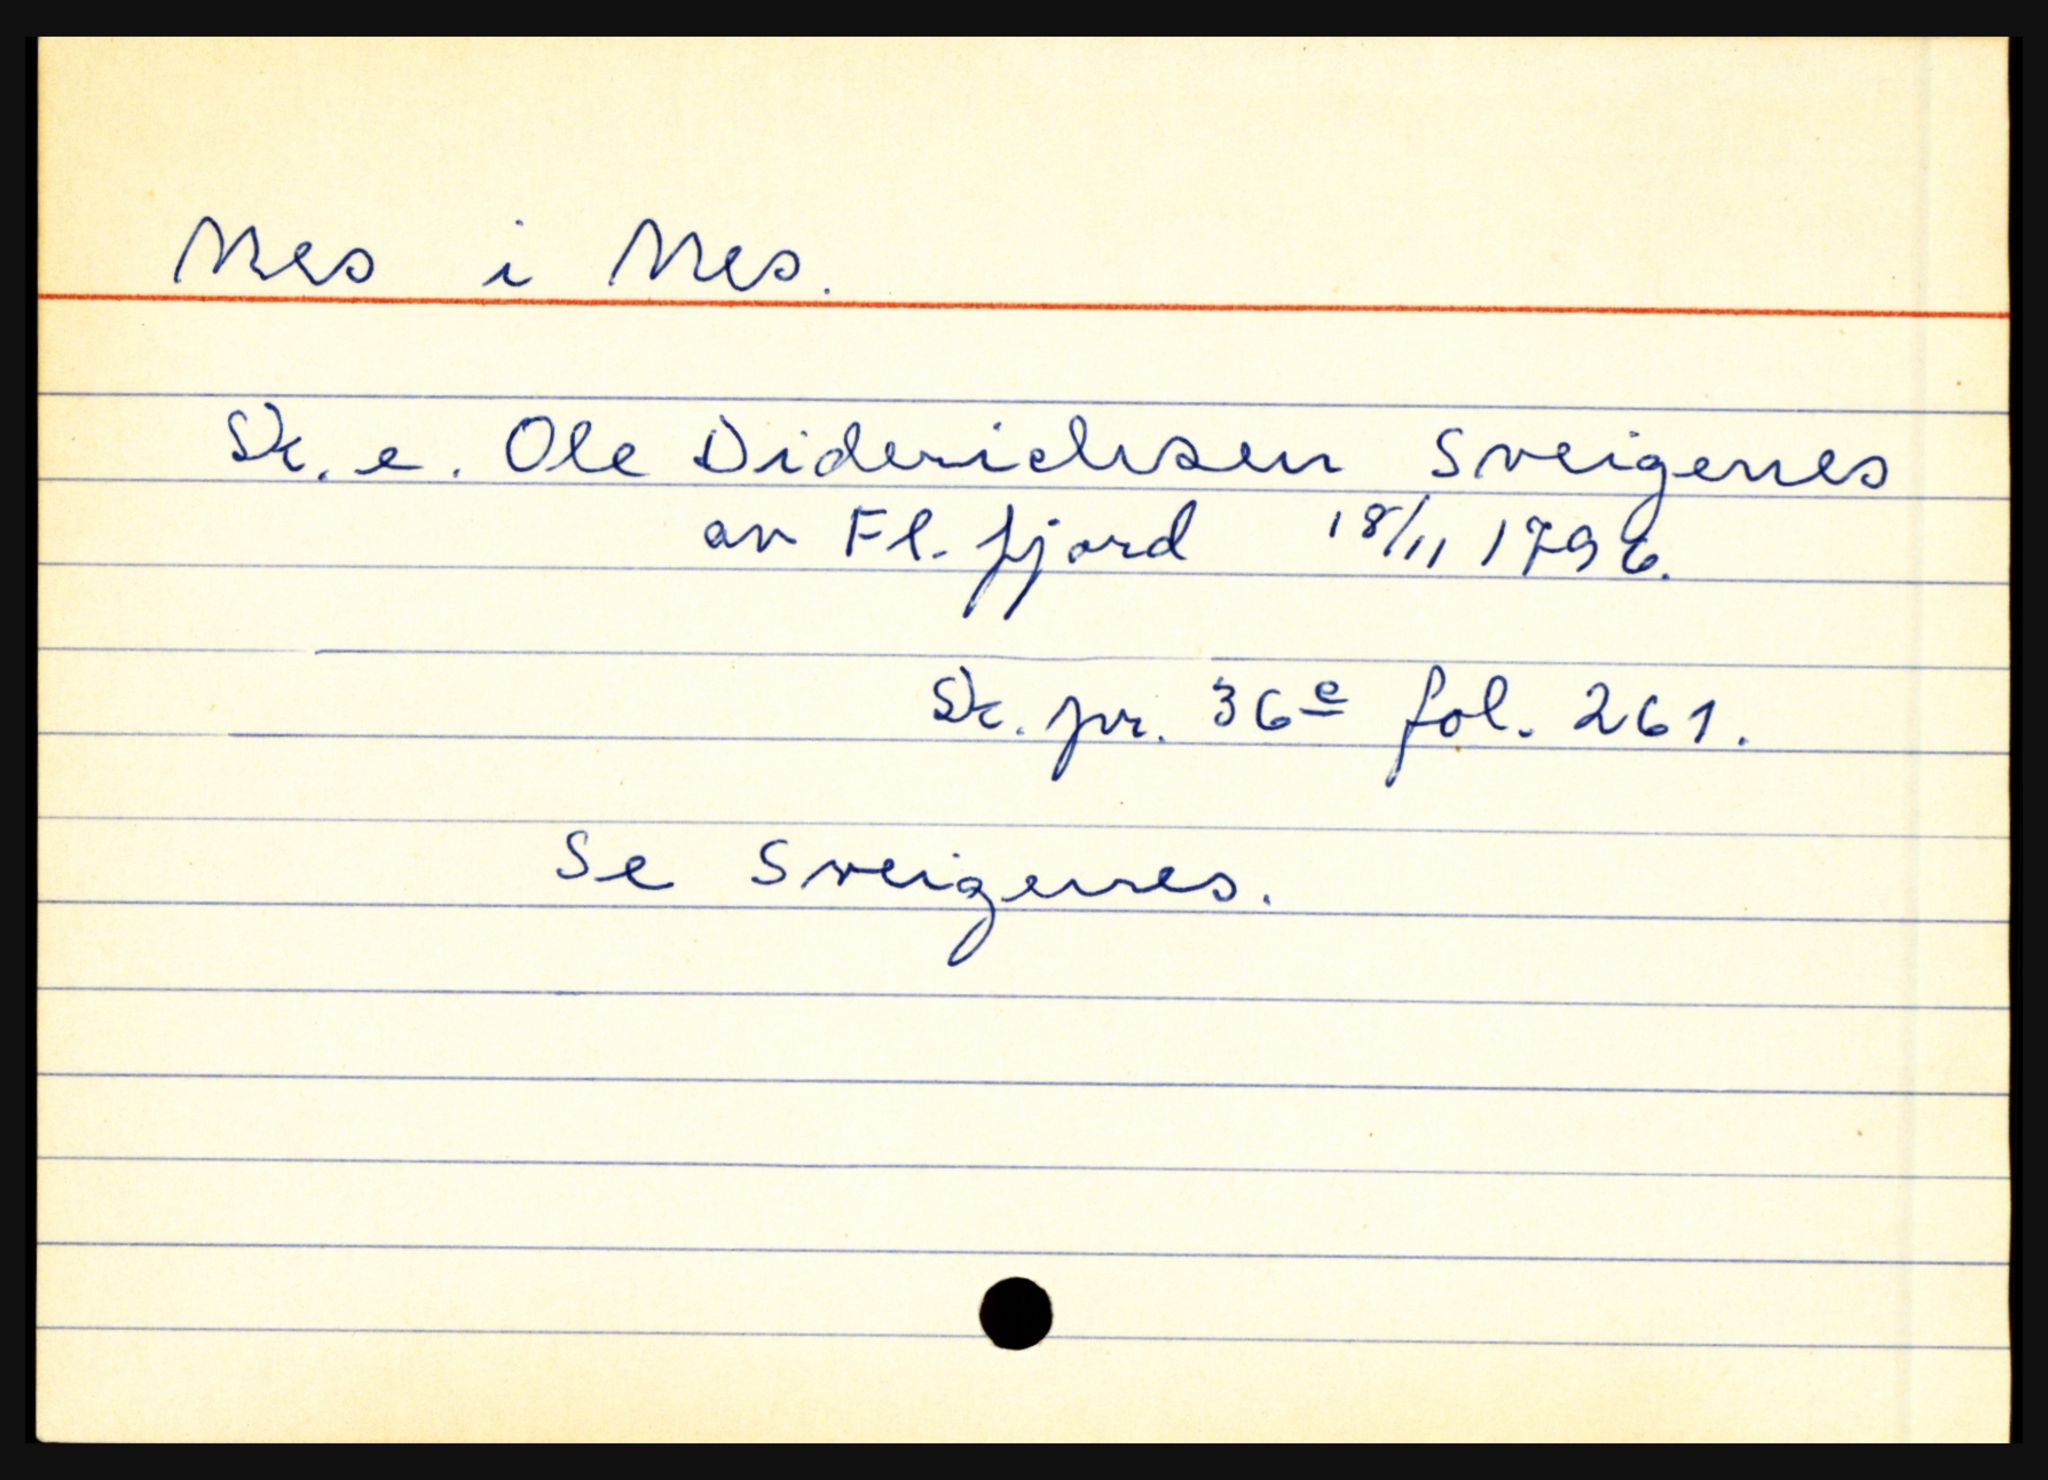 Nes i Nes.
Sk. e. Ole Diderichsen Sveigenes
av Fl. fjord 18/11 1796.
Sk. pr. 36e fol. 261.
Se Sveigenes.